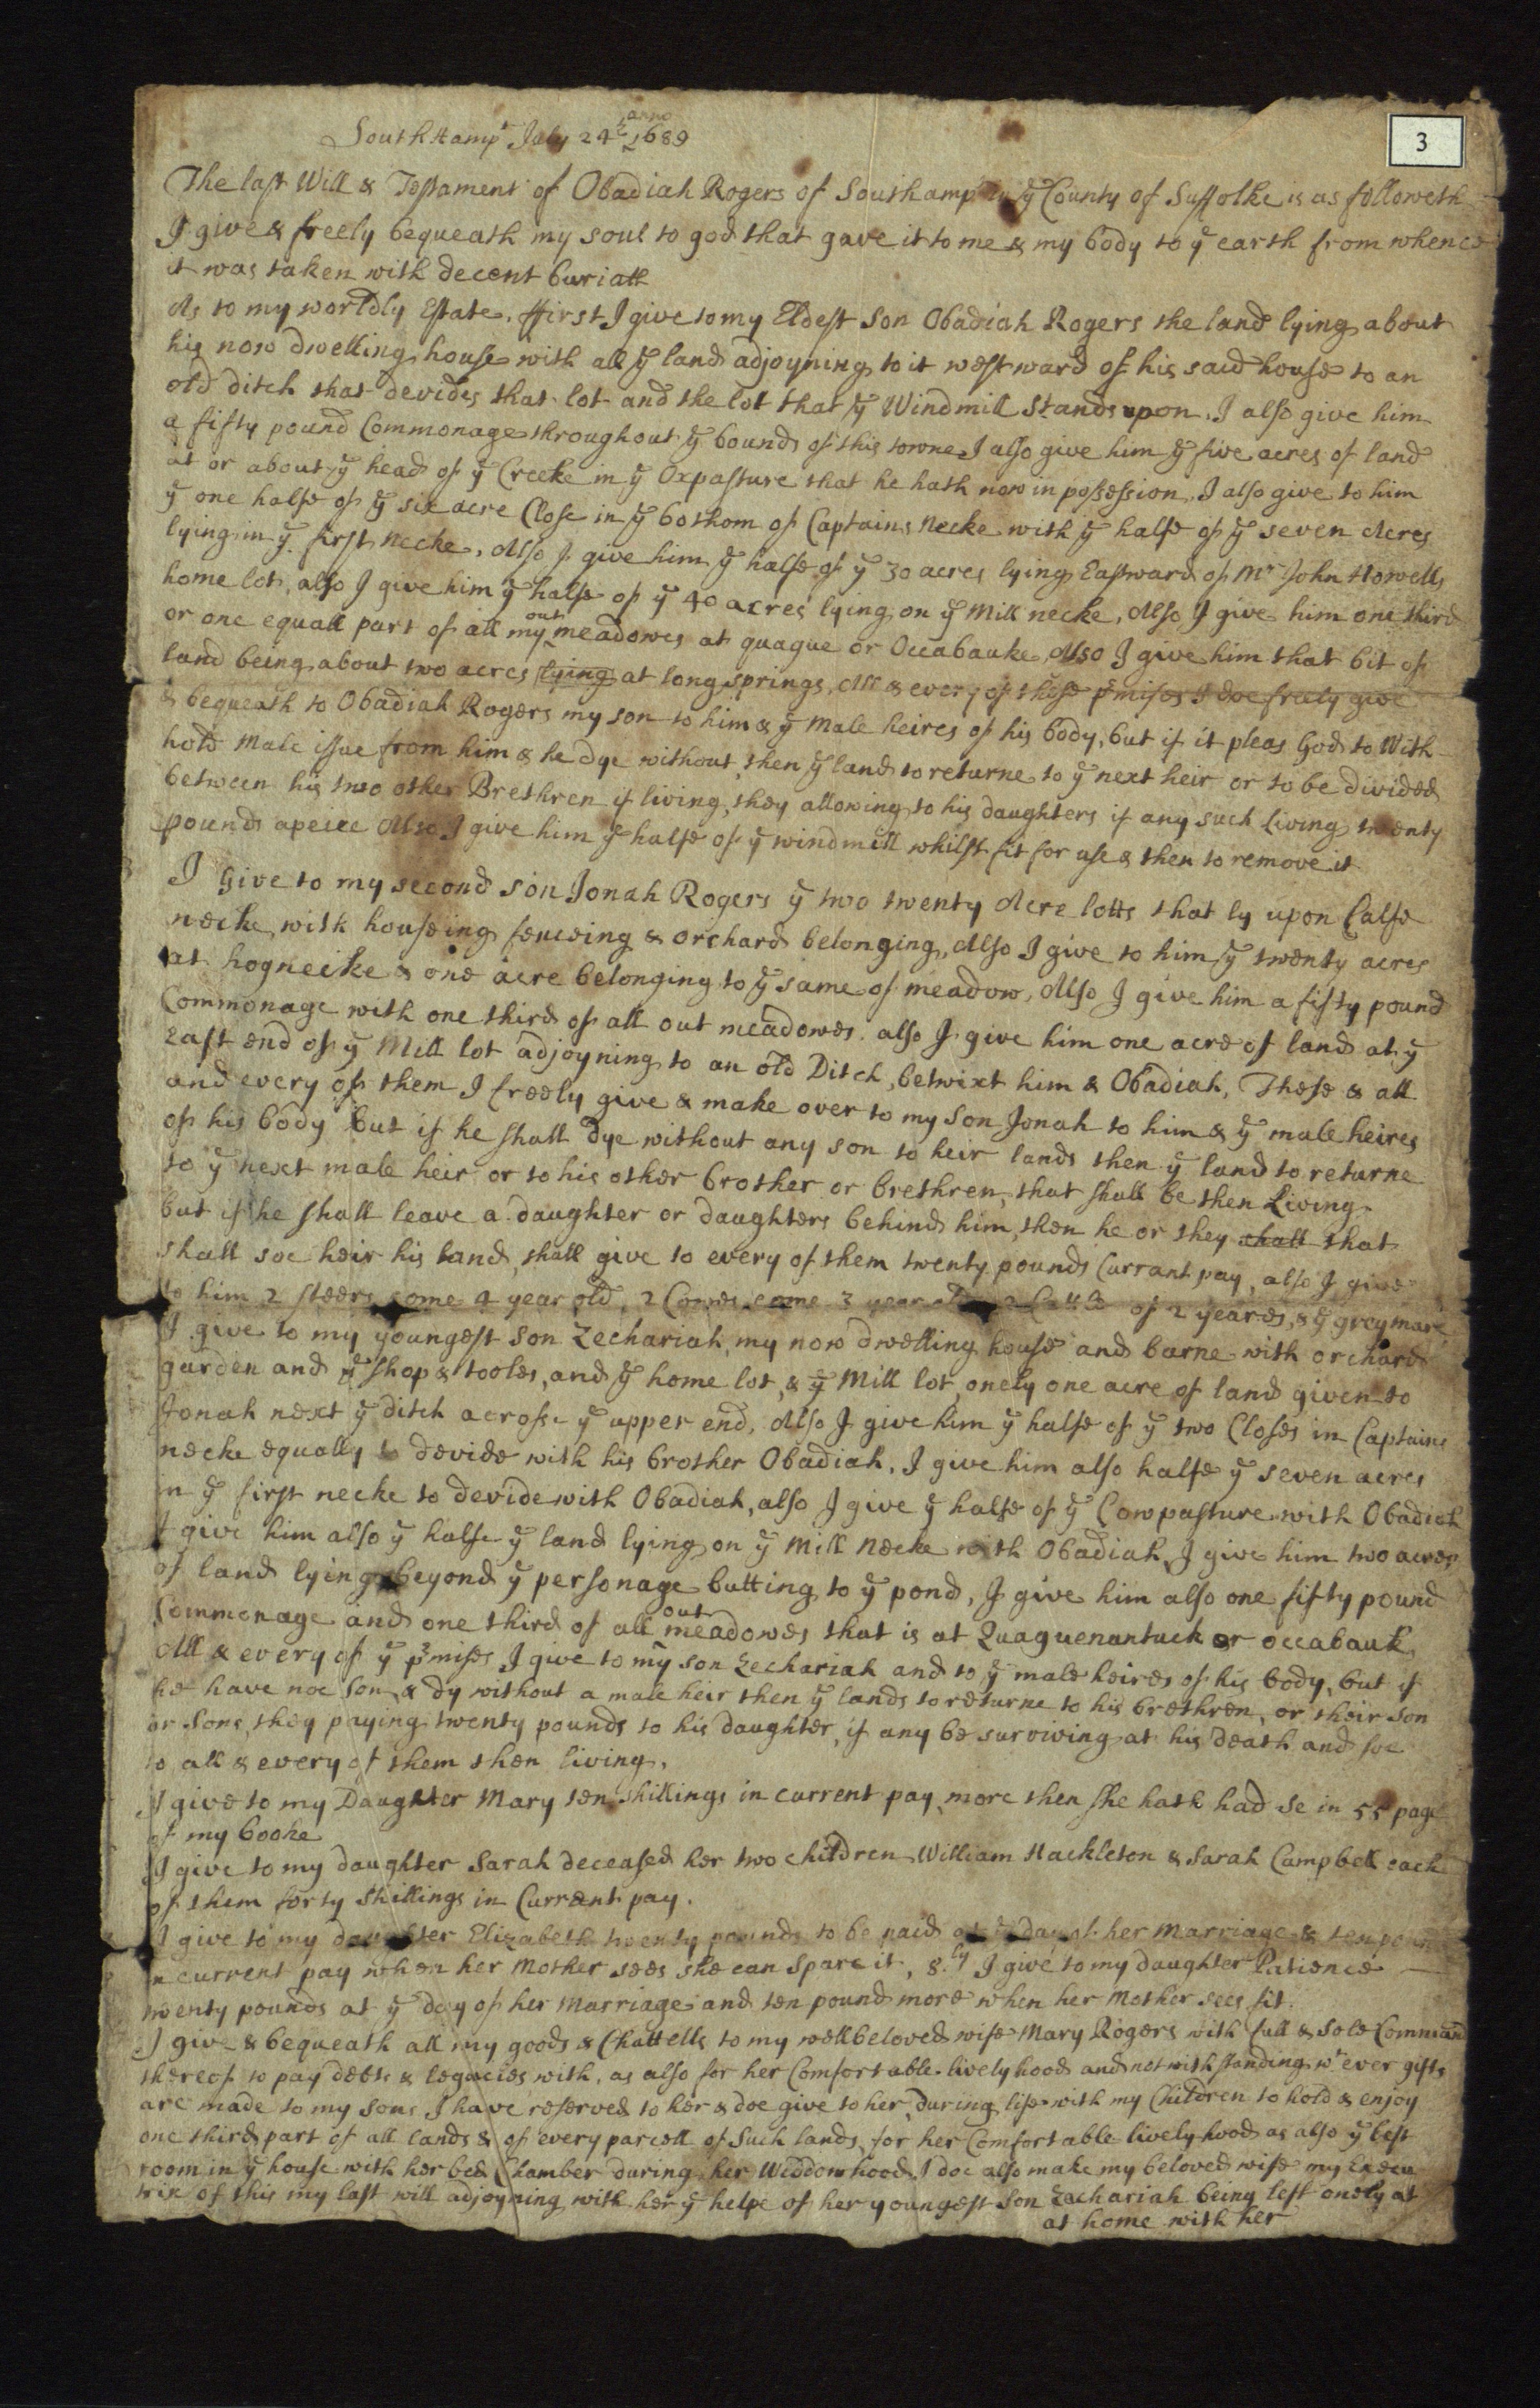 3
SouthHampt July 24th anno 1689
The last Will & Testament of Obadiah Rogers of Southampt in ye County of Suffolke is as followeth
I give & freely bequeath my soul to god that gave it to me & my body to ye earth from whence
it was taken with decent buriall
As to my worldly Estate, ffirst I give to my Eldest Son Obadiah Rogers the land lying about
his now dwelling house with all ye land adjoyning to it westward of his said house to an
old ditch that devides that lot and the lot that ye Windmill stands upon, I also give him
a fifty pound Commonage throughout ye bounds of this towne I also give him ye five acres of land
at or about ye head of ye Creeke in ye Oxpasture that he hath now in possession, I also give to him
ye one halfe of ye six acre Close in ye bothom of Captains Necke with ye halfe of ye seven Acres
lying in ye first necke, Also I give him ye halfe of ye 30 acres lying Eastward of Mr John Howells
home lot, also I give him ye halfe of ye 40 acres lying on ye Mill necke, Also I give him one third
or one equall part of all my out meadowes at quague or Occabauke, Also I give him that bit of
land being about two acres lying at long springs, All & every of these pmises I doe freely give
& bequeath to Obadiah Rogers my son to him & ye Male heires of his body, but if it pleas God to With
hold Male issue from him & he dye without, then ye land to returne to ye next heir or to be divided
between his two other Brethren if living, they allowing to his daughters if any such Living twenty
pounds apeice Also I give him ye halfe of ye windmill whilst fit for use & then to remove it
I Give to my second son Jonah Rogers ye two twenty Acre lotts that ly upon Calfe
necke, with houseing fenceing & orchard belonging, Also I give to him ye twenty acres
at hogneicke & one acre belonging to ye same of meadow, Also I give him a fifty pound
Commonage with one third of all out meadowes. also I give him one acre of land at ye
East end of ye Mill lot adjoyning to an old Ditch, betwixt him & Obadiah, These & all
and every of them I freely give & make over to my son Jonah to him & ye male heires
of his body but if he shall dye without any son to heir lands then ye land to returne
to ye next male heir or to his other brother or brethren, that shall be then Living
but if he shall leave a daughter or daughters behind him, then he or they shall that
shall soe heir his land, shall give to every of them twenty pounds Currant pay, also I give
to him 2 steers come 4 year old, 2 Cowes come 3 year of 2 yeares, & ye grey mare
I give to my youngest son Zechariah, my now dwelling house and barne with orchard
garden and ye shop & tooles, and ye home lot, & ye Mill lot, onely one acre of land given to
Jonah next ye ditch acrosse ye upper end, Also I give him ye halfe of ye two Closes in Captains
necke equally to devide with his brother Obadiah, I give him also halfe ye seven acres
in ye first necke to devide with Obadiah, also I give ye halfe of ye Cowpasture with Obadiah
I give him also ye halfe ye land lying on ye Mill Necke with Obadiah, I give him two acres
of land lying beyond ye personage butting to ye pond, I give him also one fifty pound
Commonage and one third of all out meadowes that is at Quaguenantuck or occabauk,
All & every of ye pmises I give to my son Zechariah and to ye male heires of his body, but if
he have noe son & dy without a male heir then ye lands to returne to his brethren, or their son
or Sons, they paying twenty pounds to his daughter, if any be surviving at his death and soe
to all & every of them then living.
I give to my Daughter Mary ten shillings in current pay, more then she hath had se in 55 page
of my booke
I give to my daughter Sarah deceased her two children William Hackleton & Sarah Campbell each
of them forty Shillings in Current pay.
I give to my daughter Elizabeth twenty pounds to be paid at ye day of her Marriage & ten pound
in current pay when her Mother sees she can Spare it, 8.ly I give to my daughter Patience
twenty pounds at ye day of her Marriage and ten pound more when her Mother sees fit.
I give & bequeath all my goods & Chattells to my wellbeloved wife Mary Rogers with full & Sole Command
thereof to pay debts & legacies with, as also for her Comfortable livelyhood and notwithstanding wt ever gifts
are made to my sons I have reserved to her & doe give to her during life with my Children to hold & enjoy
one third part of all lands & of every parcell of Such lands, for her Comfortable livelyhood as also ye best
room in ye house with her bed Chamber during her Widdowhood I doe also make my beloved wife my Execu
trix of this my last will adjoyning with her ye helpe of her youngest Son Zachariah being left onely at
at home with her